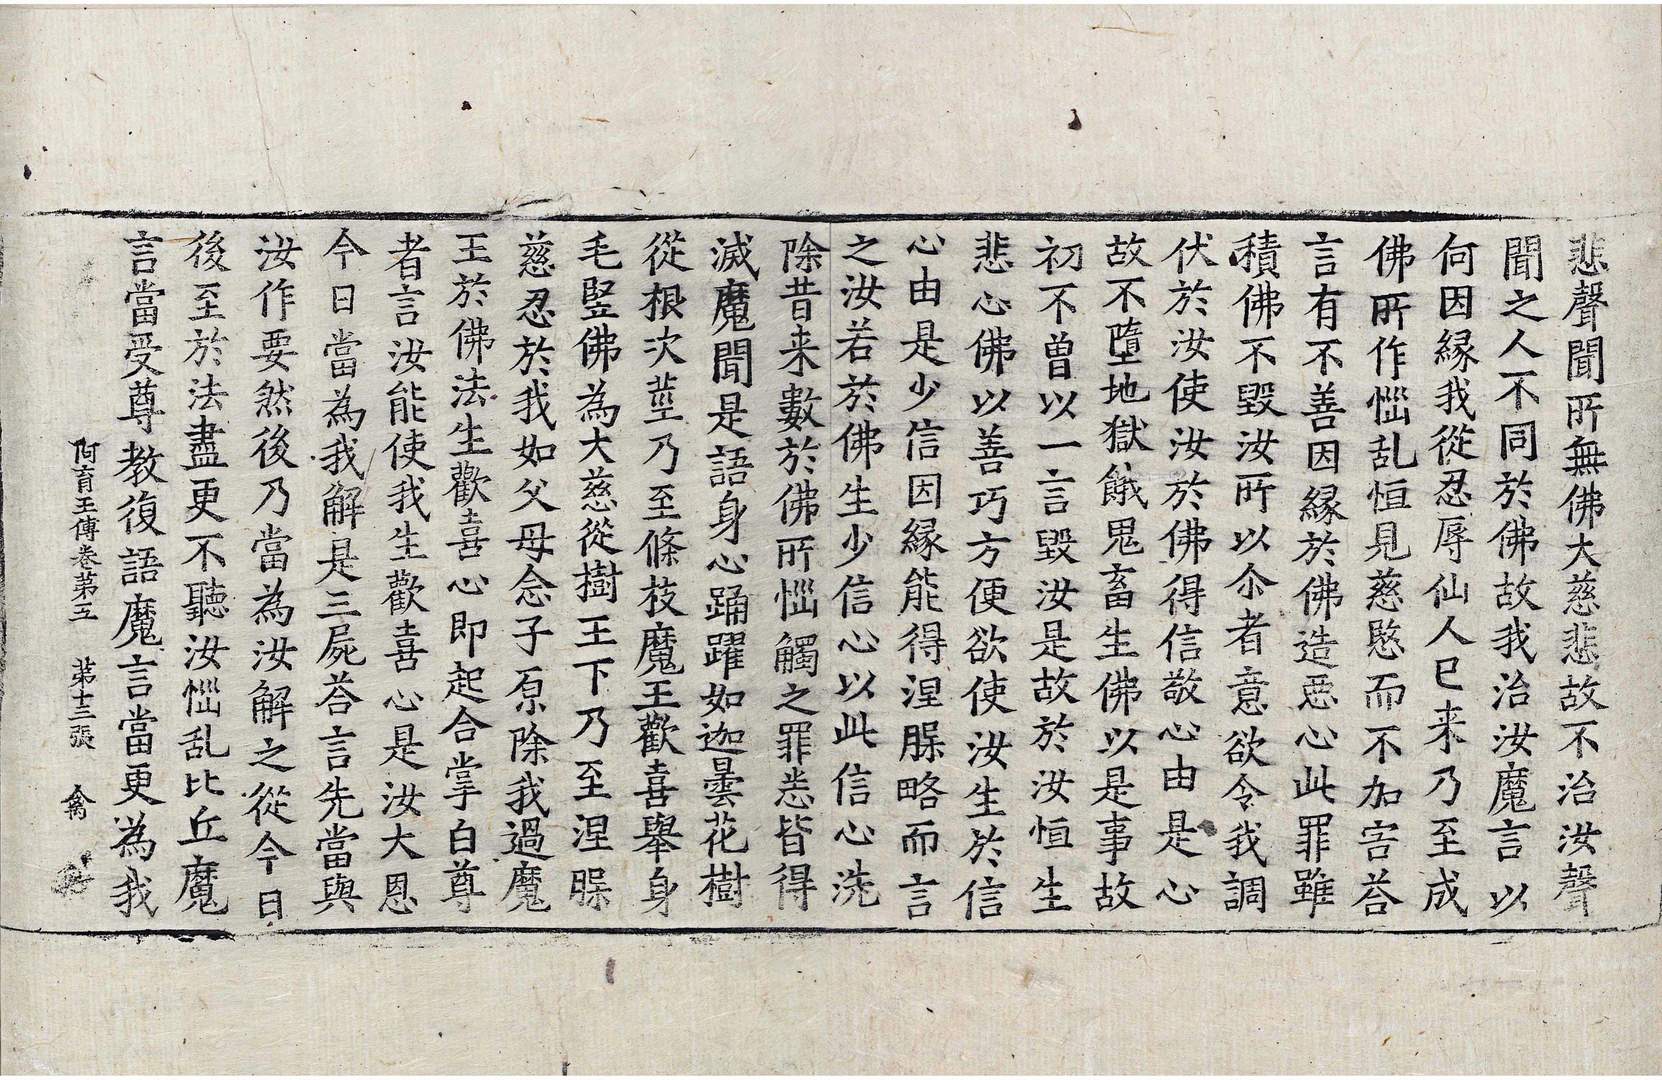 悲聲聞所無佛大慈悲故不治汝聲
聞之人不同於佛故我治汝魔言以
何因縁我從忍辱仙人已来乃至成
佛所作惱乱恒見慈愍而不加害荅
言有不善因縁於佛造惡心此罪雖
積佛不毀汝所以尒者意欲令我調
伏於汝使汝於佛得信敬心由是心
故不墮地獄餓鬼畜生佛以是事故
初不曾以一言毀汝是故於汝恒生
悲心佛以善巧方便欲使汝生於信
心由是少信因縁能得涅槃略而言
之汝若於佛生少信心以此信心洗
除昔来數於佛所惱觸之罪悉皆得
滅魔聞是語身心踊躍如迦曇花樹
從根次莖乃至條枝魔王歡喜舉身
毛竪佛為大慈從樹王下乃至涅槃
慈忍於我如父母念子原除我過魔
王於佛法生歡喜心即起合掌白尊
者言汝能使我生歡喜心是汝大恩
今日當為我解是三屍荅言先當與
汝作要然後乃當為汝解之從今日
後至於法盡更不聽汝惱乱比丘魔
言當受尊教復語魔言當更為我
阿育王傳卷第五 第十三張 禽